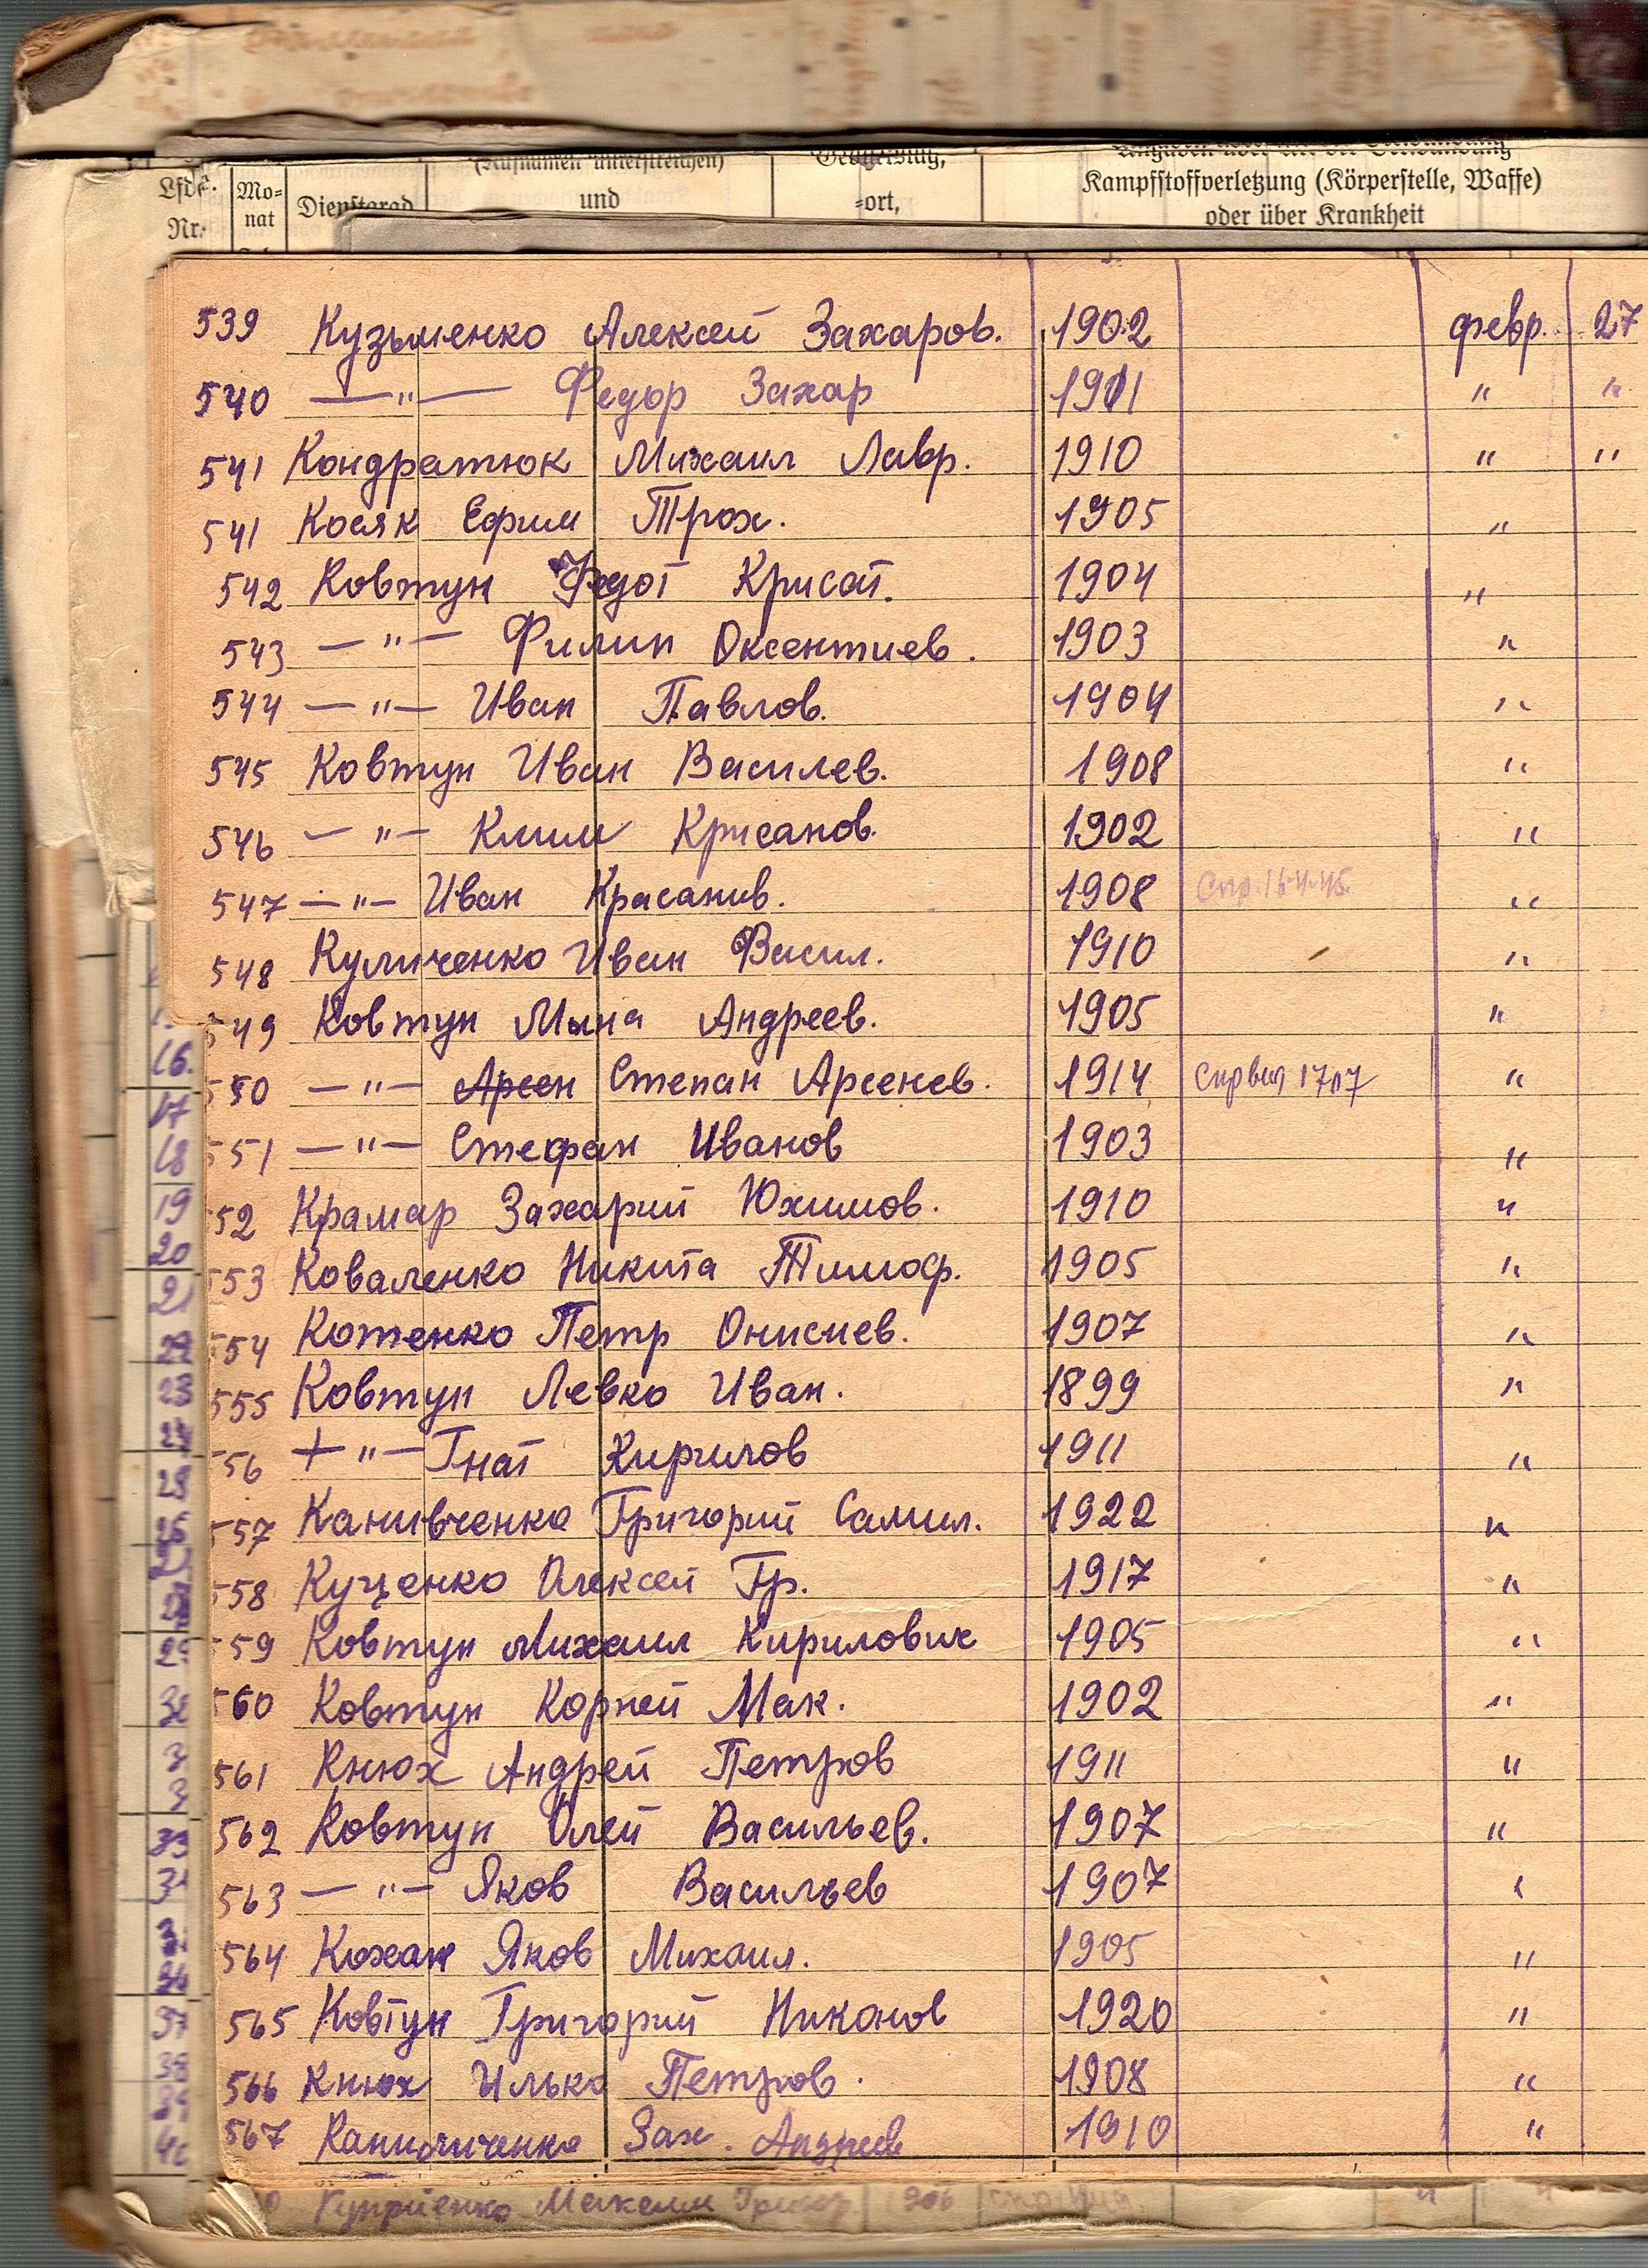 (Rufnamen unterstreichen)
Lfde. Mo- Dienstgrad und ort, Kampfstoffverletzung (Körperstelle, Waffe)
Nr. nat oder über Krankheit
539 Кузьменко Алексей Захаров. 1902 февр. 27
540 —"— Федор Захар 1911 " "
541 Кондратюк Михаил Лавр. 1910 " "
541 Косяк Ефим Трох. 1905 "
542 Ковтун Федот Крисат. 1904 "
543 —"— Филип Оксентиев. 1903 "
544 —"— Иван Павлов. 1904 "
545 Ковтун Иван Василев. 1908 "
546 —"— Клим Крисанов. 1902 "
547 —"— Иван Красанив. 1908 "
548 Куличенко Иван Васил. 1910 "
549 Ковтун Мина Андреев. 1905 "
550 —"— Арсен Степан Арсенев. 1914 "
551 —"— Стефан Иванов 1903 "
552 Крамар Захарий Юхимов. 1910 "
553 Коваленко Никита Тимоф. 1905 "
554 Котенко Петр Онисиев. 1907 "
555 Ковтун Левко Иван. 1899 "
556 + "— Гнат Кирилов 1911 "
557 Канивченко Григорий Самил. 1922 "
558 Куценко Олексей Гр. 1917 "
559 Ковтун Михаил Кирилович 1905 "
560 Ковтун Корней Мак. 1902 "
561 Кнюх Андрей Петров 1911 "
562 Ковтун Олей Васильев. 1907 "
563 —"— Яков Васильев 1907 "
564 Кохан Яков Михаил. 1905 "
565 Ковтун Григорий Никонов 1920 "
566 Кнюх Илько Петров. 1908 "
567 Зах. Андреев 1910 "
Куприенко 1906 " "